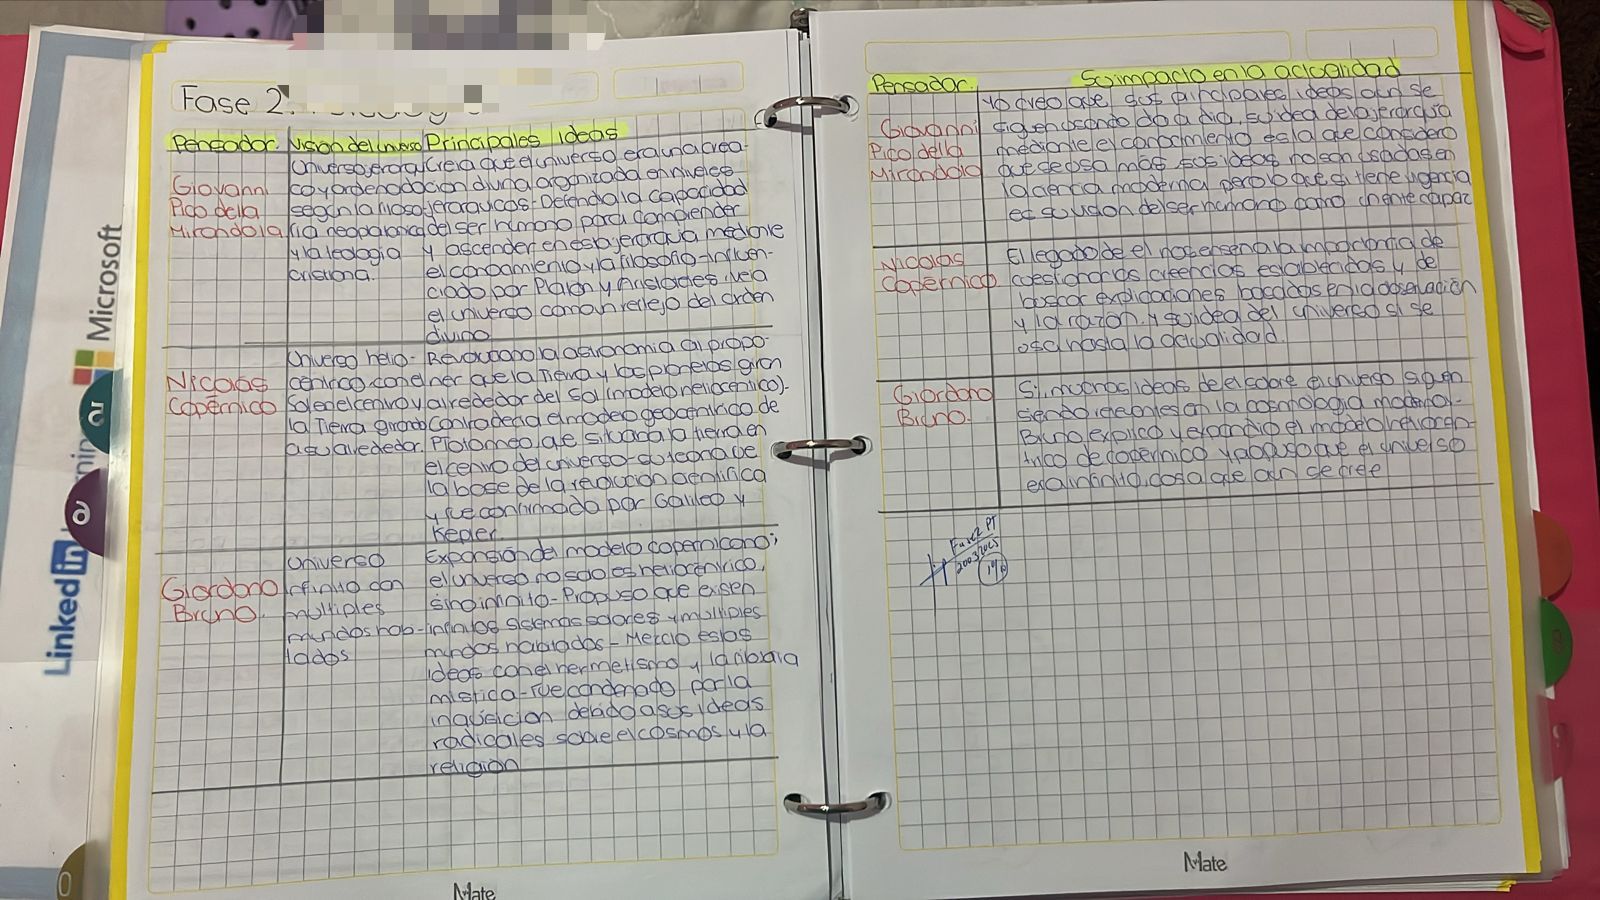 Fase 2.
Pensador. Visión del universo Principales ideas
Giovanni
Pico della
Mirandola
Universo jerarqui
co y ordenado
según la filoso-
fía neoplatonica
y la teologia
cristiana.
Creia que el universo era una crea-
ción divina organizada en niveles
jerarquicos-Defendia la capacidad
del ser humano para comprender
y ascender en esta jerarquia mediante
el conocamiento y la filosofia-influen-
ciado por Platon y Aristoteles, veia
el universo como un reflejo del orden
divino
Nicolás
Copérnico
Universo helio-
céntrico con el
Sol en el centro y
la Tierra girando
a su alrededor.
Revoluciono la astronomia al propo-
ner que la Tierra y los planetas giran
alrededor del Sol (modelo heliocentrico)-
Contradecia el modelo geocéntrico de
Ptolomeo, que situaba la tierra en
el centro del universo-su teoria de
la base de la revolución cientifica
y fue confirmada por Galileo y
Kepler.
Giordano
Bruno.
Universo
infinito con
multiples
mundos hab-
itados
Expansión del modelo copernicano;
el universo no solo es heliocéntrico,
sino infinito-Propuso que existen
infinitos sistemas solares y multiples
mundos habitados-Mezclo estas
ideas con el hermetismo y la filosofia
mistica-Fue condenado por la
inquisicion debido a sus ideas
radicales sobre el cosmos y la
religión
Mate
Pensador. Su impacto en la actualidad
Giovanni
Pico della
Mirandola
Yo creo que sus principales ideas aun se
siguen usando dia a dia, su idea de la jerarquia
mediante el conocimiento es la que considero
que se usa más, sus ideas no son usadas en
la ciencia moderna pero lo que si tiene vigencia
es su vision del ser humano como un ente capaz
Nicolas
Copernico
El legado de el nos enseña la importancia de
cuestionar las creencias establecidas y de
buscar explicaciones basadas en la observación
y la razón. y su idea del universo si se
usa hasta la actualidad.
Giordano
Bruno.
Si, muchas ideas de el sobre el universo siguen
siendo relevantes en la cosmologia moderna.
Bruno explico y expandio el modelo heliocen-
trico de copernico y propuso que el universo
era infinito, cosa que aun se cree
Fase2 PT
20032025
Mate
Microsoft
Linked in